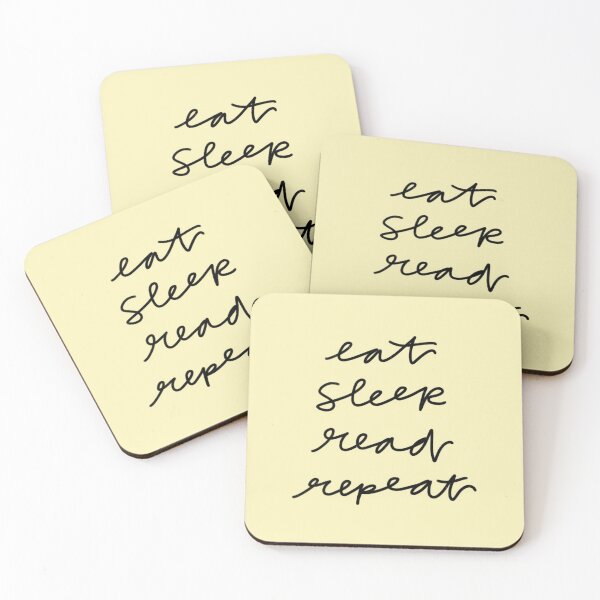 eat
sleep
read
eat
sleep
read
eat
sleep
read
repeat
eat
sleep
read
repeat